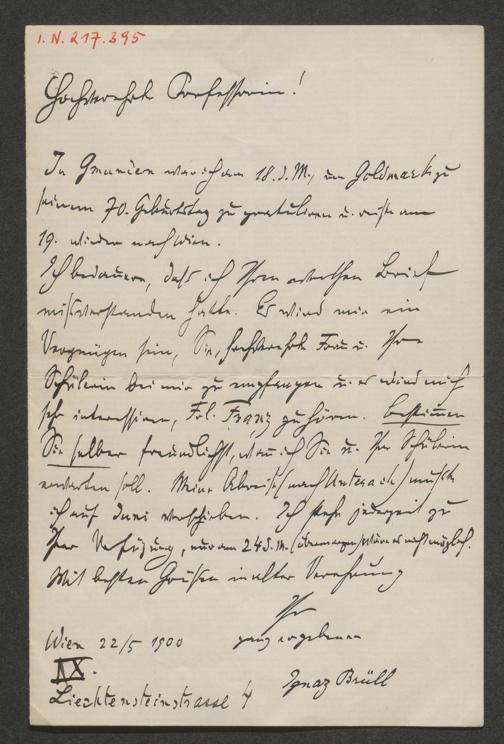 I.N. 217.395
Hochverehrte Professorin!
In Gmunden war ich am 18. d. M., um Goldmark zu
seinem 70. Geburtstag zu gratuliren u. reiste am
19. wieder nach Wien.
Ich bedauere, daß ich Ihren werthen Brief
mißverstanden hatte. Es wird mir ein
Vergnügen sein, Sie, hochverehrte Frau u. Ihre
Schülerin bei mir zu empfangen u. es wird mich
sehr interessiren, Frl. Franz zu hören. Bestimmen
Sie selber freundlichst, wann ich Sie u. Ihre Schülerin
erwarten soll. Meine Abreise (nach Unterach) mußte
ich auf Juni verschieben. Ich stehe jederzeit zu
Ihrer Verfügung, nur am 24 d. M. (übermorgen) wäre es nicht möglich.
Mit besten Grüßen in alter Verehrung
Ihr
ganz ergebener
Ignaz Brüll
Wien 22/5 1900
IX.
Liechtensteinstrasse 4